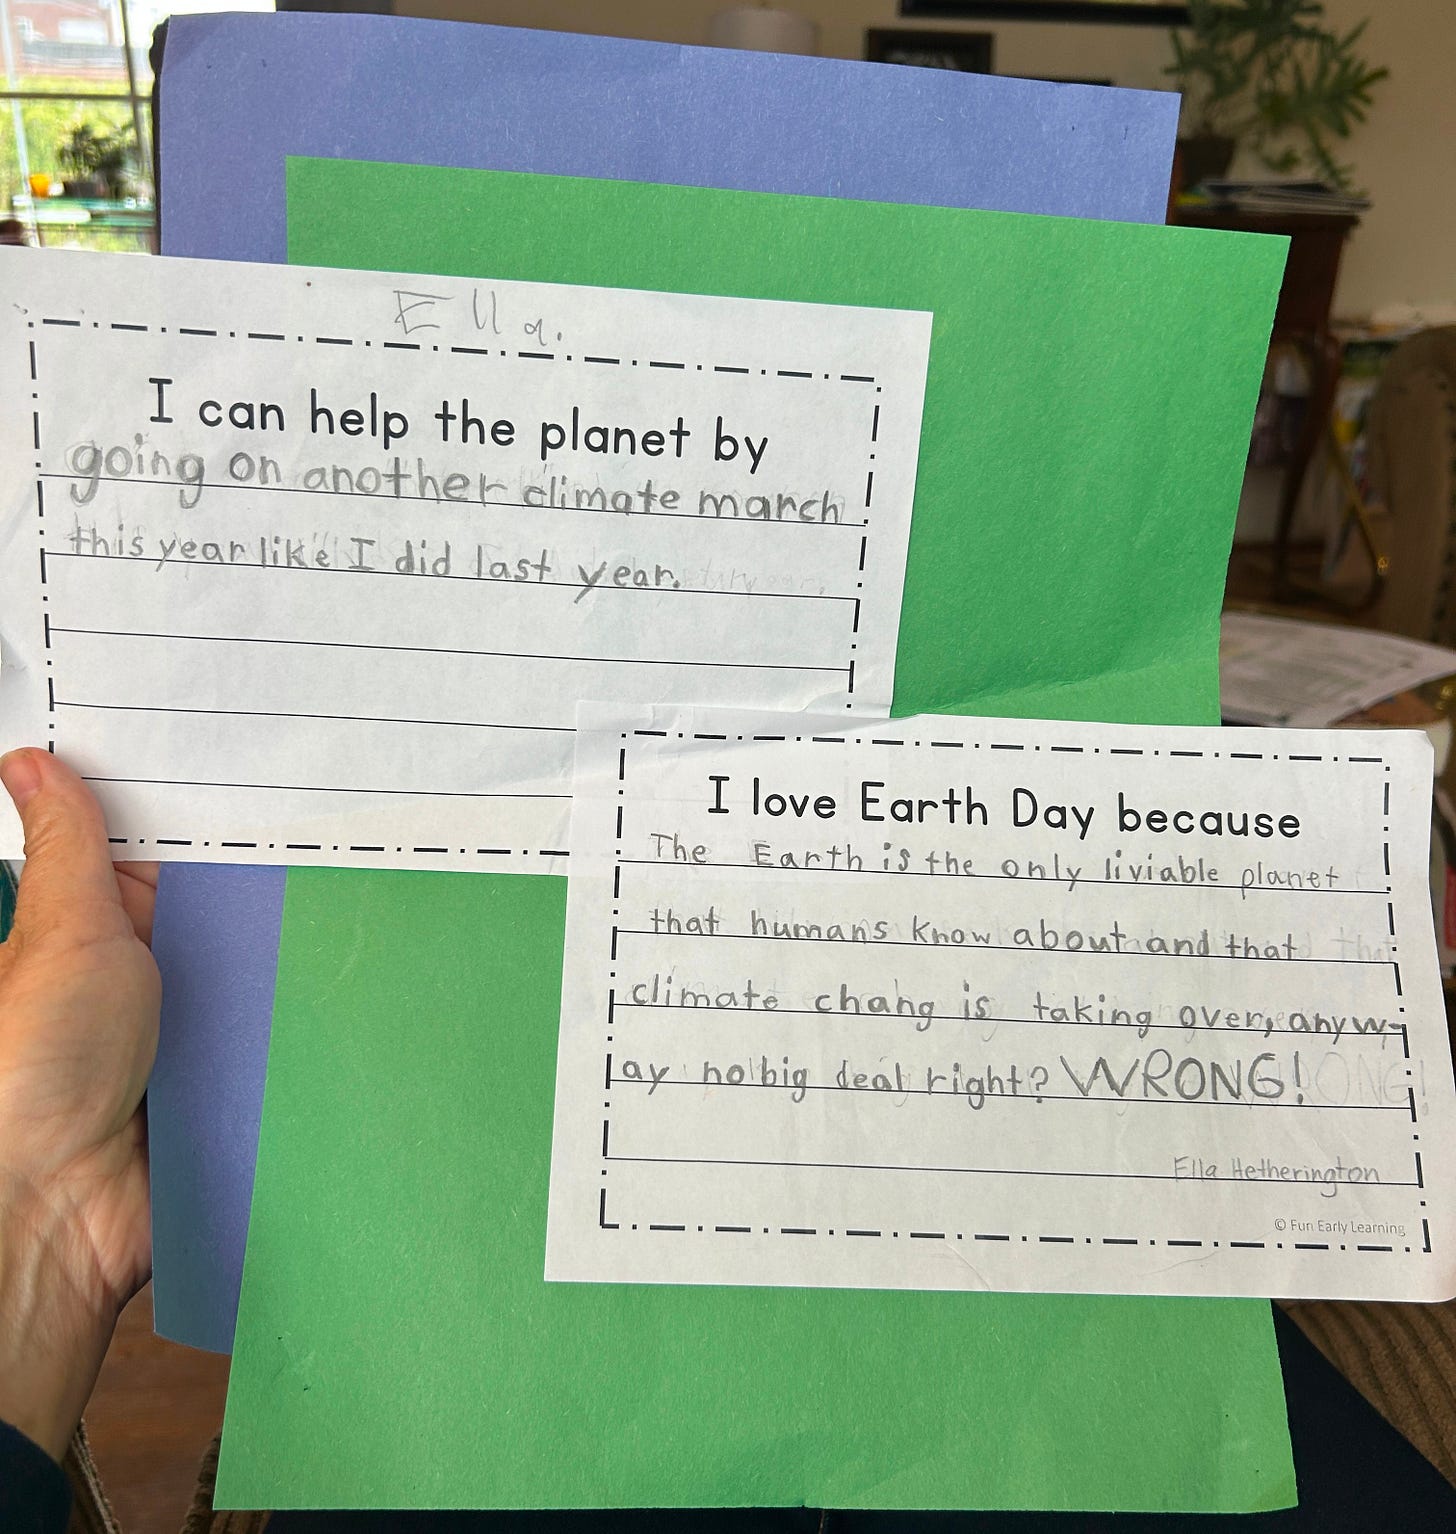 Ella.
I can help the planet by
going on another climate march
this year like I did last year.
I love Earth Day because
The Earth is the only liviable planet
that humans know about and that
climate chang is taking over, anyw-
ay no big deal right? WRONG!
Ella Hetherington
© Fun Early Learning